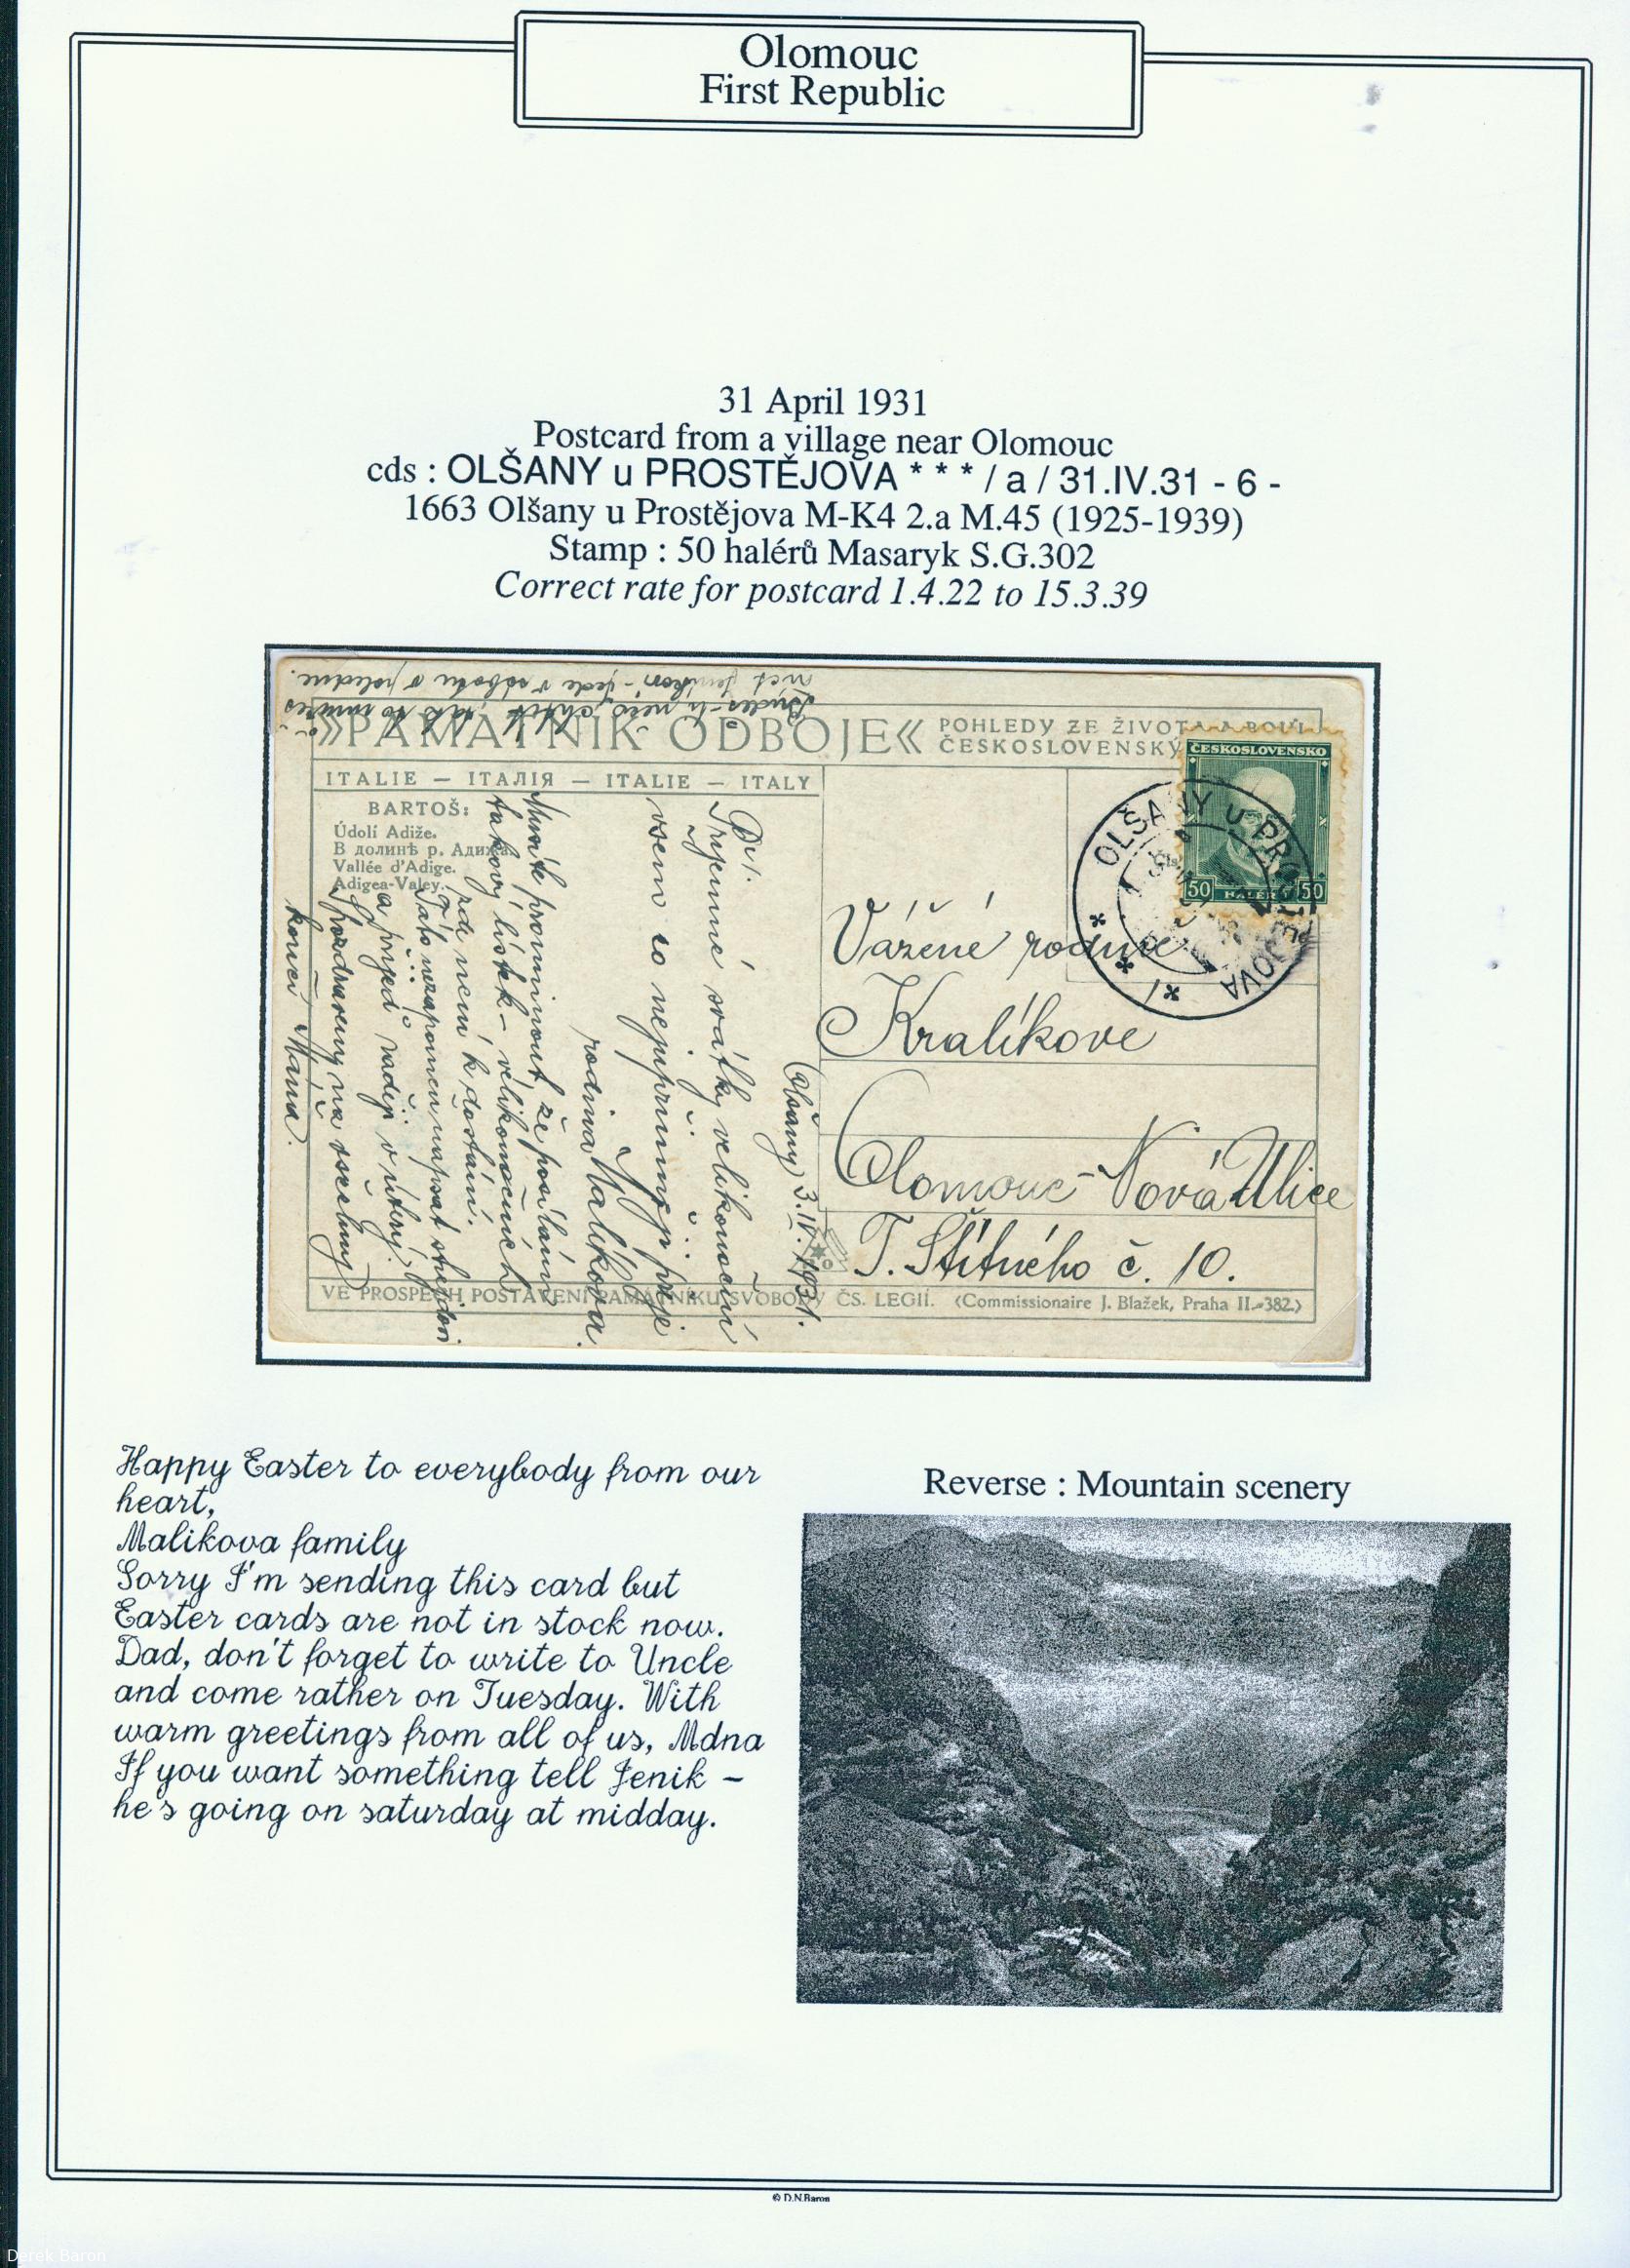 Olomouc
First Republic
31 April 1931
Postcard from a village near Olomouc
cds : OLŠANY u PROSTĚJOVA * * * / a / 31.IV.31 - 6 -
1663 Olšany u Prostějova M-K4 2.a M.45 (1925-1939)
Stamp : 50 halérů Masaryk S.G.302
Correct rate for postcard 1.4.22 to 15.3.39
jede v sobotu o poledne.
»PAMÁTNÍK ODBOJE«
POHLEDY ZE ŽIVOTA A BOJŮ
ČESKOSLOVENSKÝ
ITALIE — ИТАЛІЯ — ITALIE — ITALY
BARTOŠ:
Údolí Adiže.
В долинѣ р. Адижа
Vallée d'Adige.
Adigea-Valey.
ČESKOSLOVENSKO
50 HALÉŘŮ 50
OLŠANY u PROSTĚJOVA
Olšany 3.IV.1931.
Příjemné svátky velikonoční
všem co nejupřímněji přeje
rodina Malíkova.
Musíte prominout že posílám
takový lístek – velikonočních
zde není k dostání.
Táto nezapomeň napsat strýčkovi
a přijeď raději v úterý.
Pozdraveny na všechny
končí Mána.
Vážené rodině
Kralíkove
Olomouc - Nová Ulice
T. Štítného č. 10.
VE PROSPĚCH POSTAVENÍ PAMÁTNÍKU SVOBODY ČS. LEGIÍ. (Commissionaire J. Blažek, Praha II.-382.)
Happy Easter to everybody from our
heart,
Malikova family
Sorry I'm sending this card but
Easter cards are not in stock now.
Dad, don't forget to write to Uncle
and come rather on Tuesday. With
warm greetings from all of us, Mdna
If you want something tell Jenik –
he's going on saturday at midday.
Reverse : Mountain scenery
© D.N.Baron
Derek Baron